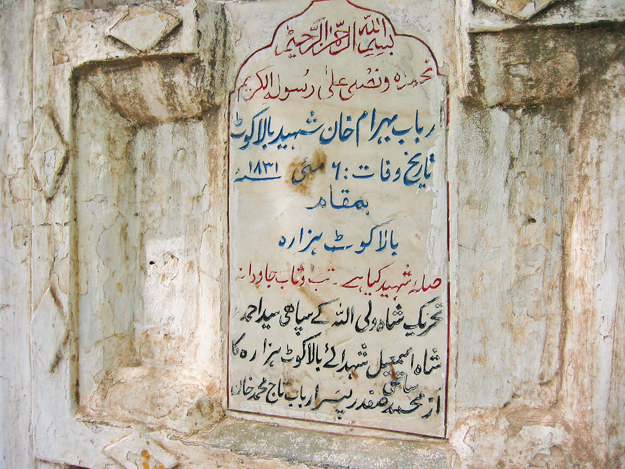 بسم الله الرحمن الرحيم
نحمده ونصلى على رسوله الكريم
ارباب بہرام خان شہید بالاکوٹ
تاریخ وفات : ۶ مئی ۱۸۳۱ء
بمقام
بالاکوٹ ہزارہ
صلۂ شہید کیا ہے تب و تاب جاودانہ
تحریک شاہ ولی اللہ کے سپاھی سید احمد
شاہ اسمعیل شہدائے بالاکوٹ ہزارہ کا
ساتھی
از محمد صفدر پسر ارباب تاج محمد خان